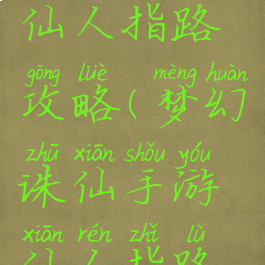 仙人指路
gōng lüè mèng huàn
攻略(梦幻
zhū xiān shǒu yóu
诛仙手游
xiān rén zhǐ lù
仙人指路